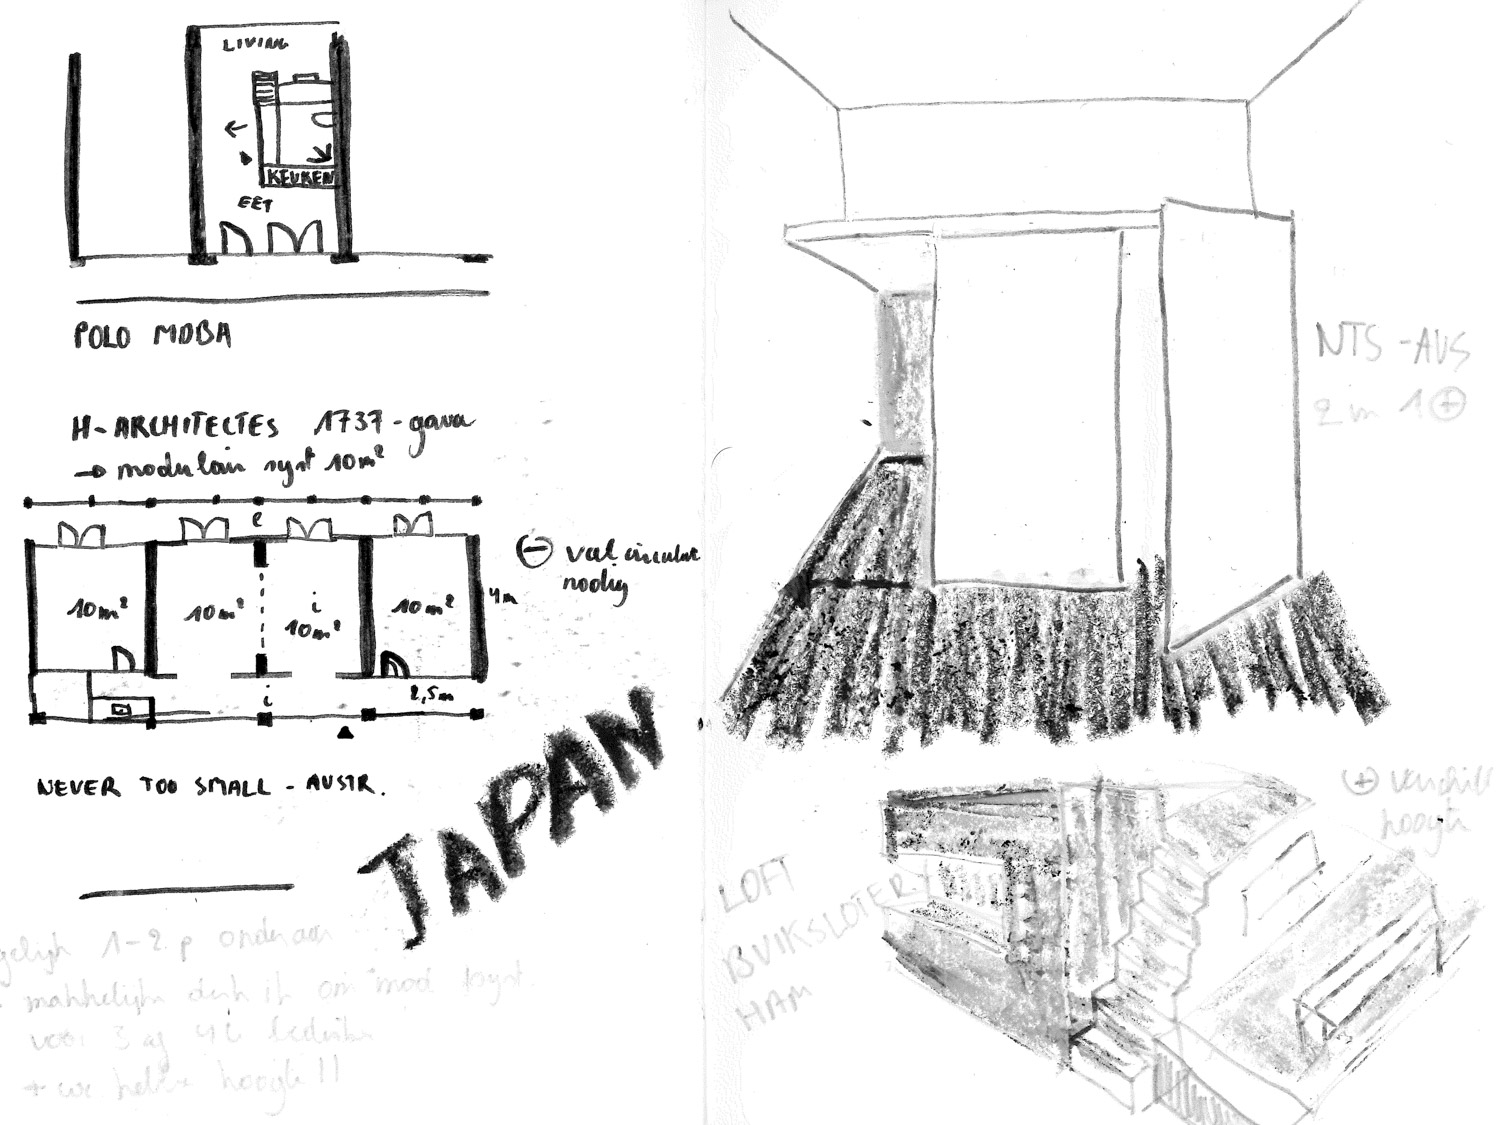 LIVING
KEUKEN
EET
POLO MOBA
H-ARCHITECTES 1737-gava
→ modulair syst 10m²
e
10m²
10m²
i
10m²
10m²
4m
i
2,5m
⊖ val circulatie
nodig
NEVER TOO SMALL - AUSTR.
JAPAN
1-2 p onderaan
makkelijk denk ik om mod syst.
voor 3 à 4
+ we hoogte!!
NTS - AUS
2 in 1 ⊕
LOFT
BUIKSLOTER
HAM
⊕ verschil
hoogte